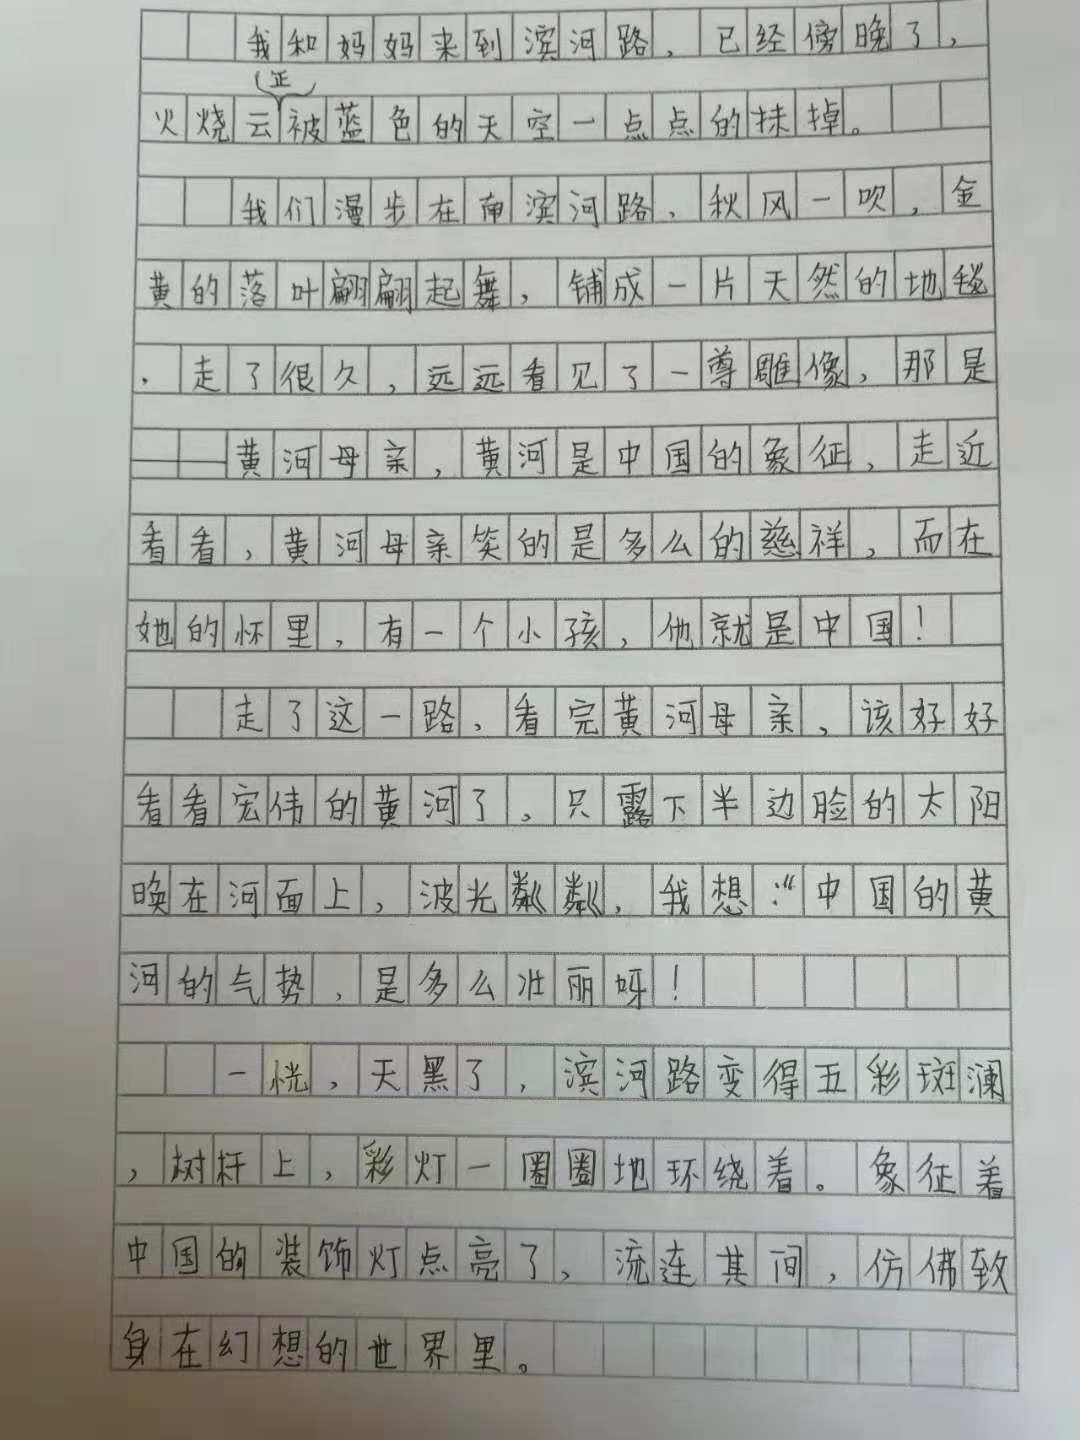 我和妈妈来到滨河路，已经傍晚了，
正
火烧云被蓝色的天空一点点的抹掉。
我们漫步在南滨河路，秋风一吹，金
黄的落叶翩翩起舞，铺成一片天然的地毯
，走了很久，远远看见了一尊雕像，那是
——黄河母亲，黄河是中国的象征，走近
看看，黄河母亲笑的是多么的慈祥，而在
她的怀里，有一个小孩，他就是中国！
走了这一路，看完黄河母亲，该好好
看看宏伟的黄河了，只露下半边脸的太阳
映在河面上，波光粼粼，我想：“中国的黄
河的气势，是多么壮丽呀！
一恍，天黑了，滨河路变得五彩斑澜
，树杆上，彩灯一圈圈地环绕着。象征着
中国的装饰灯点亮了，流连其间，仿佛致
身在幻想的世界里。